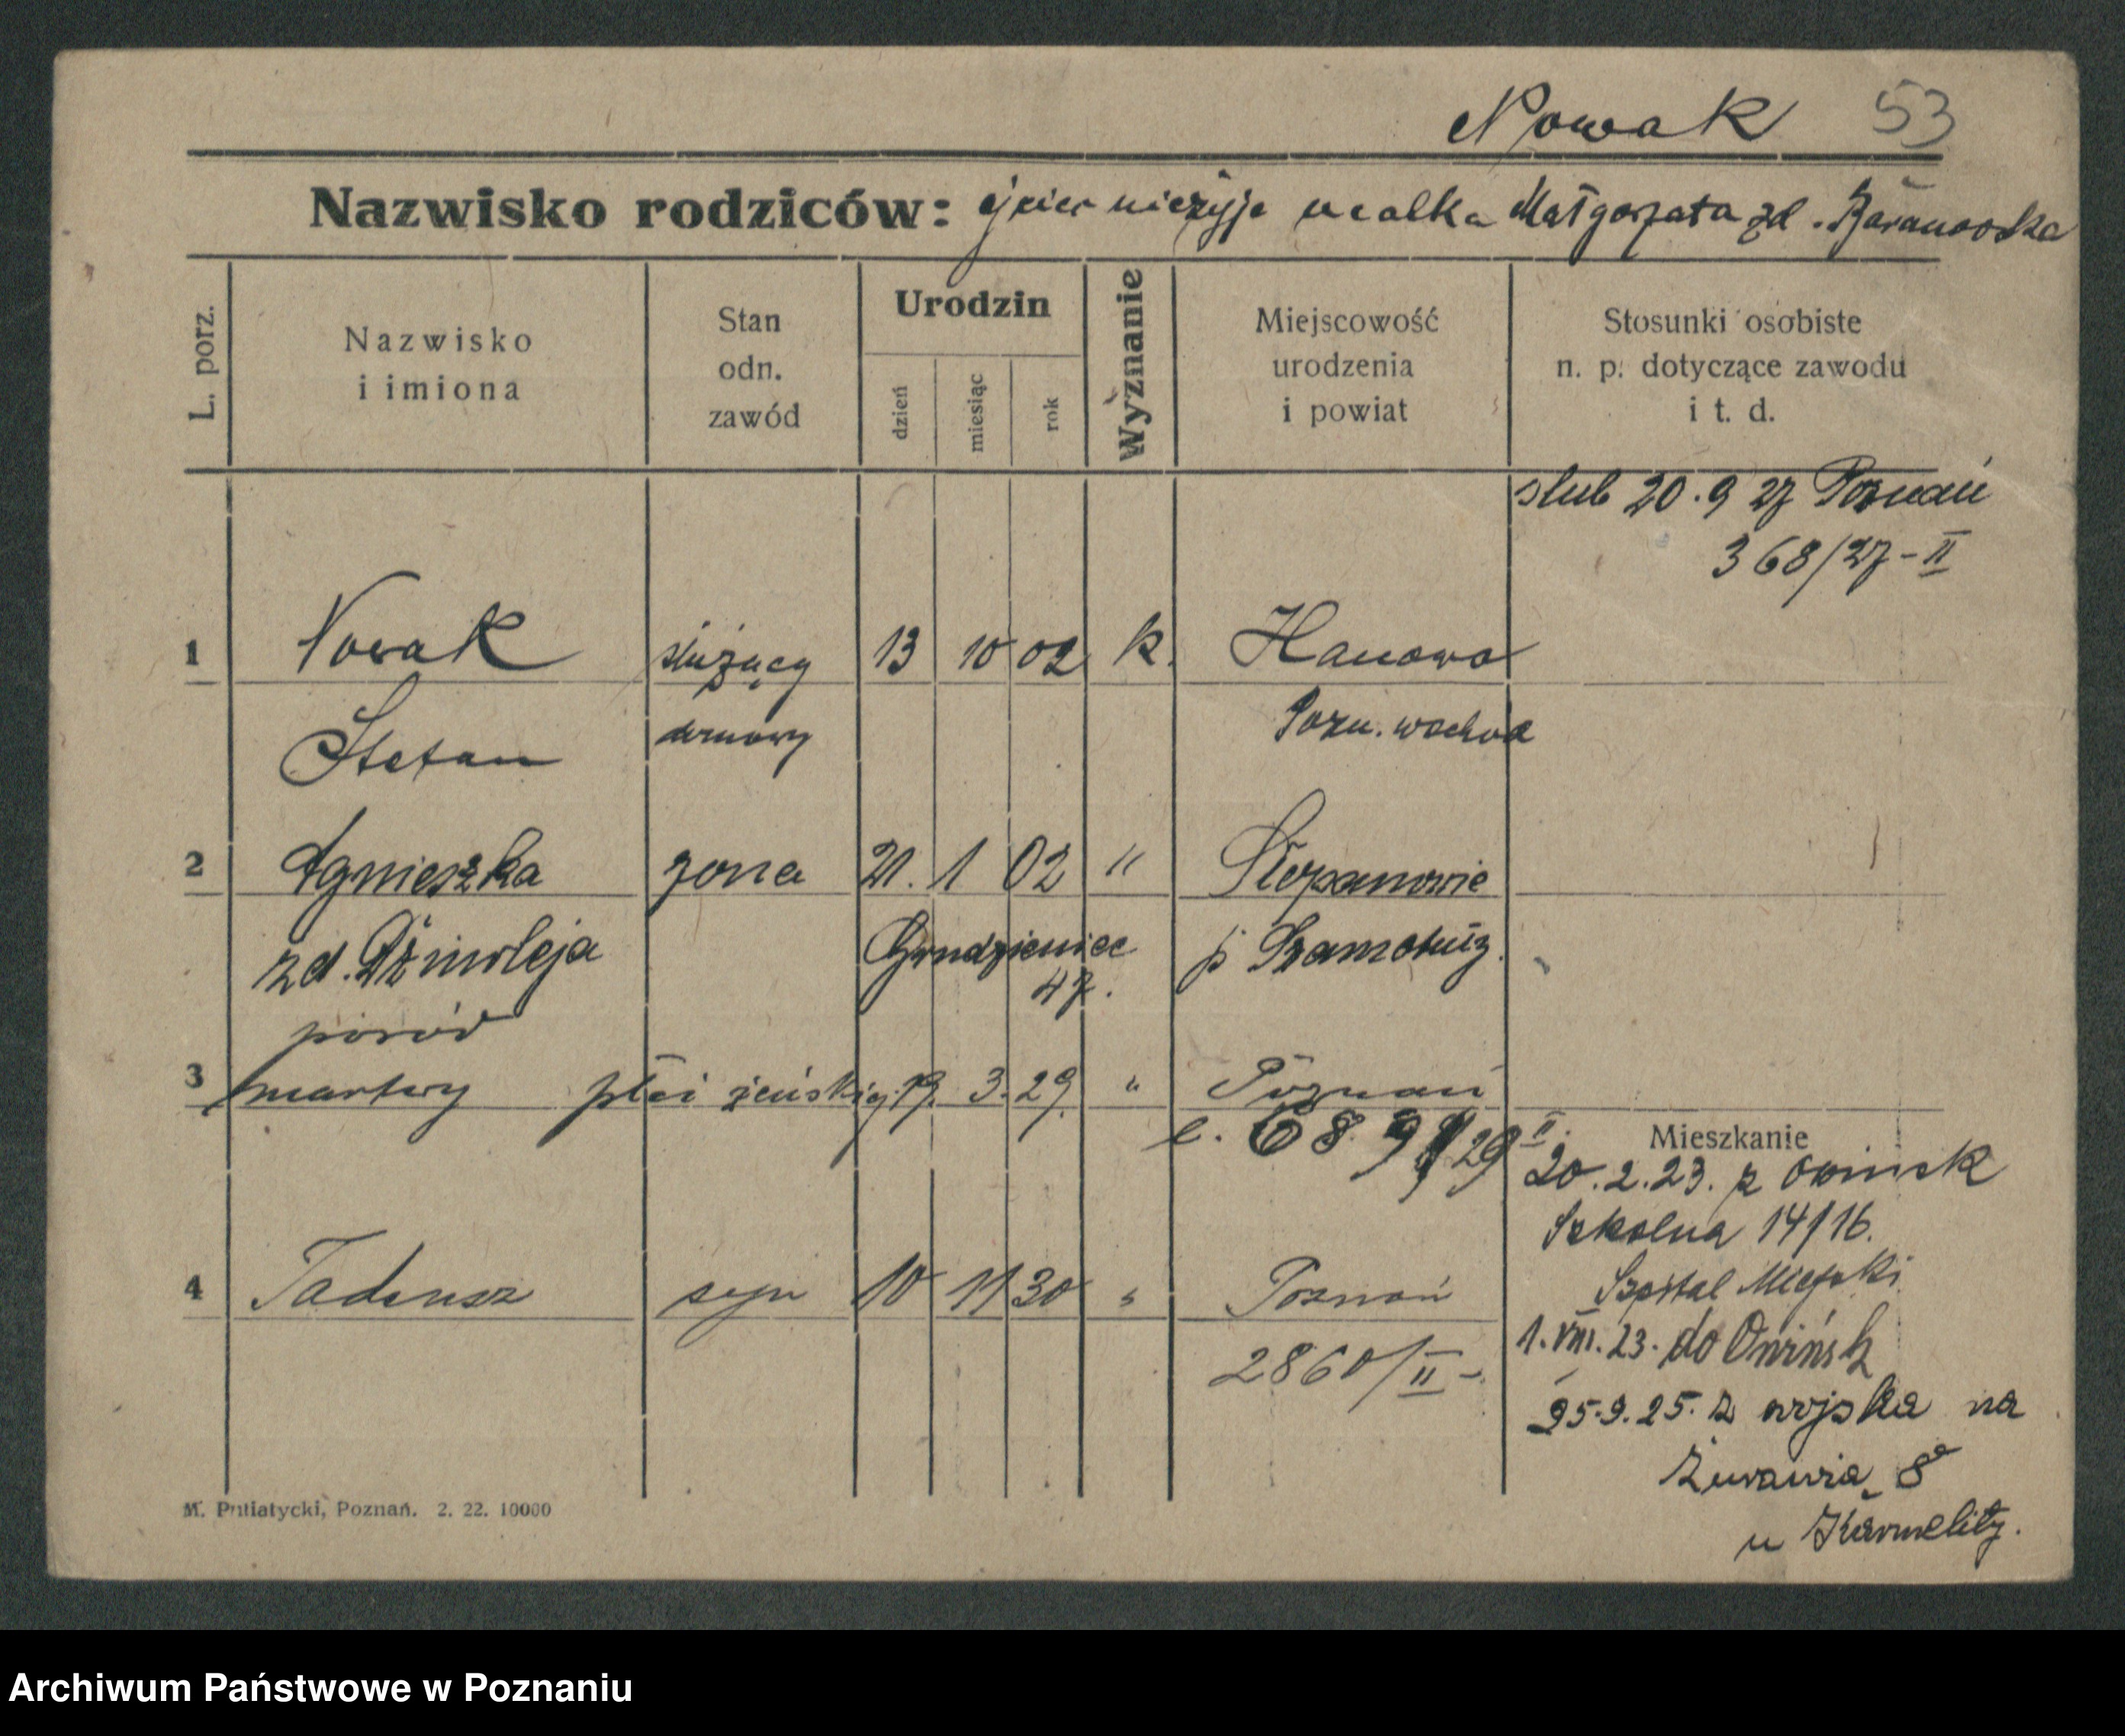 Nowak 53
Nazwisko rodziców: ojciec nieżyje matka Małgorzata zd. Baranowska
L. porz.
Nazwisko
i imiona
Stan
odn.
zawód
Urodzin
dzień
miesiąc
rok
Wyznanie
Miejscowość
urodzenia
i powiat
Stosunki osobiste
n. p. dotyczące zawodu
i t. d.
ślub 20.9 27 Poznań
368/27-II
1 Nowak służący 13 10 02 k.
Stefan domowy Pozn. wschód
2 Agnieszka żona 21. 1 02 "
zd. p. Szamotuły.
47.
poród
3 martwy płci żeńskiej 19. 3. 29. " Poznań
Mieszkanie
20.2.23. z Owińsk
Szkolna 14/16.
Szpital Miejski
4 Tadeusz syn 10 11 30 " Poznań
2860/II-
1.VIII.23. do Owińsk
25.9.25. z wojska na
Żurawia 8a
u Karmelity.
M. Putiatycki, Poznań. 2. 22. 10000
Archiwum Państwowe w Poznaniu